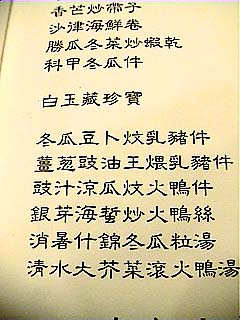 香芒炒帶子
沙律海鮮卷
勝瓜冬菜炒蝦乾
科甲冬瓜件
白玉藏珍寶
冬瓜豆卜炆乳豬件
薑葱豉油王煨乳豬件
豉汁涼瓜炆火鴨件
銀芽海蜇炒火鴨絲
消暑什錦冬瓜粒湯
清水大芥菜滾火鴨湯